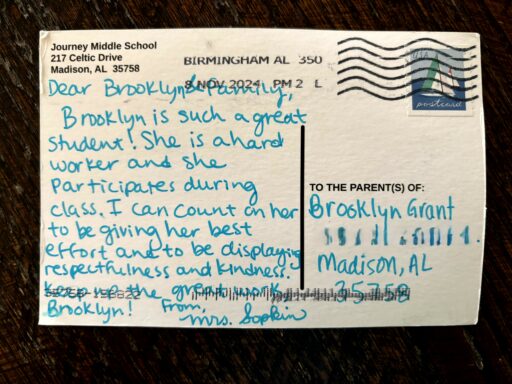 Journey Middle School
217 Celtic Drive
Madison, AL 35758
BIRMINGHAM AL 350
8 NOV 2024 PM 2 L
USA
postcard
Dear Brooklyn & Family,
Brooklyn is such a great
student! She is a hard
worker and she
participates during
class. I can count on her
to be giving her best
effort and to be displaying
respectfulness and kindness.
Keep up the great work
Brooklyn! From,
Mrs. Sopkin
TO THE PARENT(S) OF:
Brooklyn Grant
Madison, AL
35758